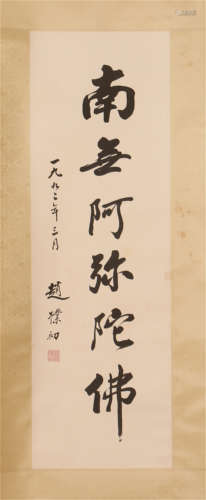 南無阿弥陀佛
一九九三年三月
趙樸初